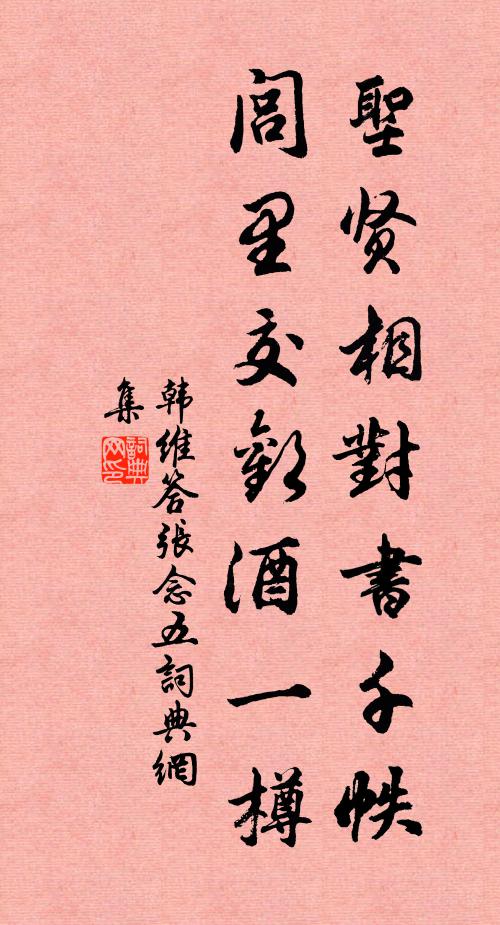 聖贤相對書千帙
閭里交歡酒一樽
韩維答張念五詞典網
集
詞典网印